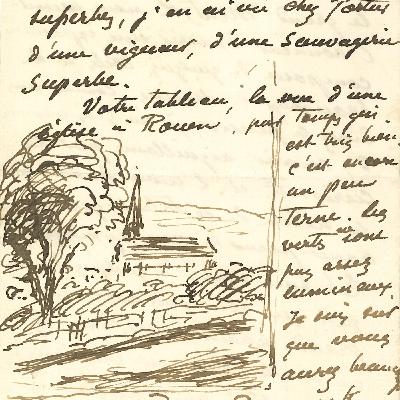 superbes, j'en ai vu chez Portier
d'une vigueur, d'une sauvagerie
superbe.
Votre tableau, la vue d'une
église à Rouen, par temps gris
est très bien
c'est encore
un peu
terne. les
verts ne sont
pas assez
lumineux.
Je suis sûr
que vous
aurez beaucoup